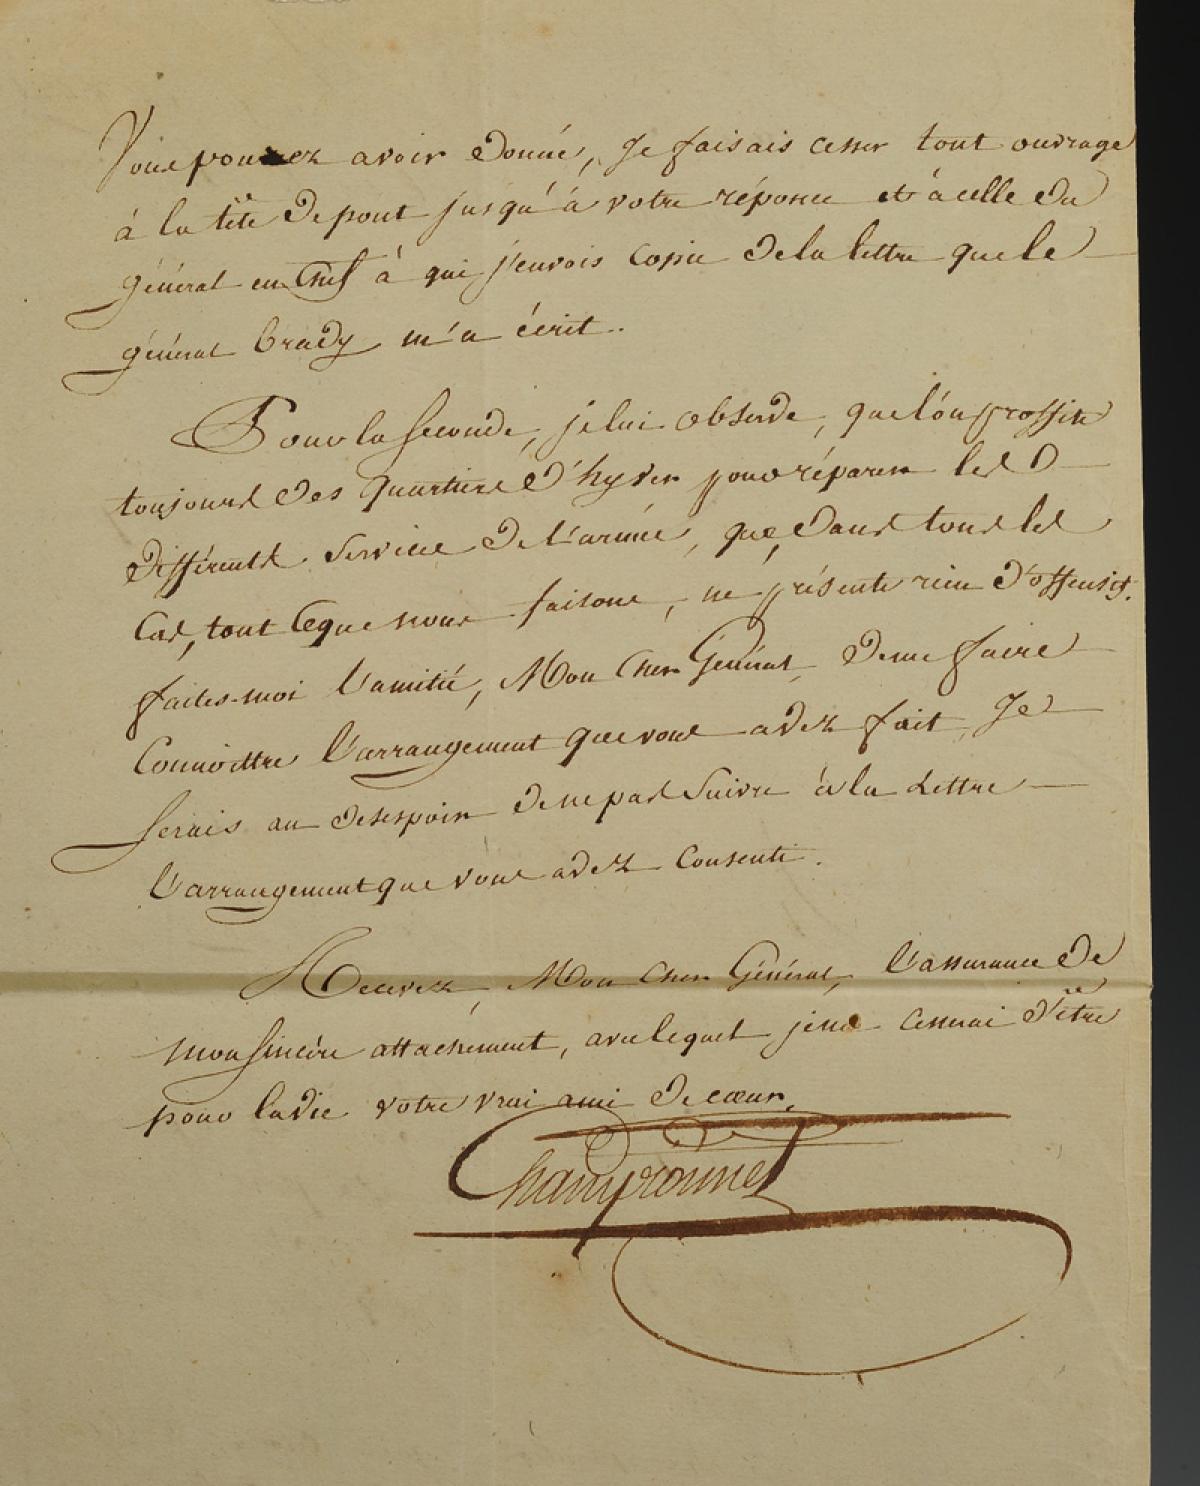 Vous pouvez avoir donné, je faisais cesser tout ouvrage
à la tête de pont jusqu'à votre réponse et à celle du
général en Chef à qui j'envois copie de la lettre que le
général Grady m'a écrit.
Pour la seconde, je lui observe, que l'on proffite
toujours des quartiers d'hyver pour réparer les
différents service de l'armée, que, dans tous les
Cas, tout ce que nous faisons, ne présente rien d'offensif.
faites-moi l'amitié, Mon cher Général, de me faire
Connoittre l'arrangement que vous avez fait, Je
serais au desespoir de ne pas suivre à la Lettre
l'arrangement que vous avez consenti.
Recevez, Mon cher Général, l'assurance de
mon sincère attachement, avec lequel je ne cesserai d'être
pour la vie votre vrai ami de cœur,
Championnet